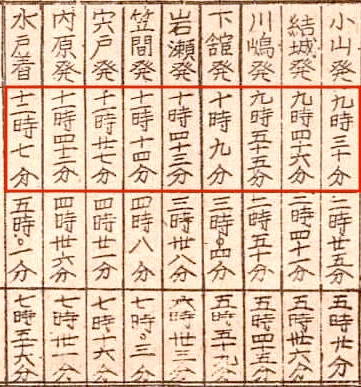 小山発 九時三十分 二時廿五分 五時廿分
結城発 九時四十六分 二時四十一分 五時卅六分
川嶋発 九時五十五分 二時五十分 五時四五分
下舘発 十時九分 三時〇四分 五時五十九分
岩瀬発 十時四十三分 三時卅八分 六時卅三分
笠間発 十一時十四分 四時八分 七時〇三分
宍戸発 十一時廿七分 四時廿一分 七時十六分
内原発 十一時四十二分 四時卅六分 七時卅一分
水戸着 十二時七分 五時〇一分 七時五十六分